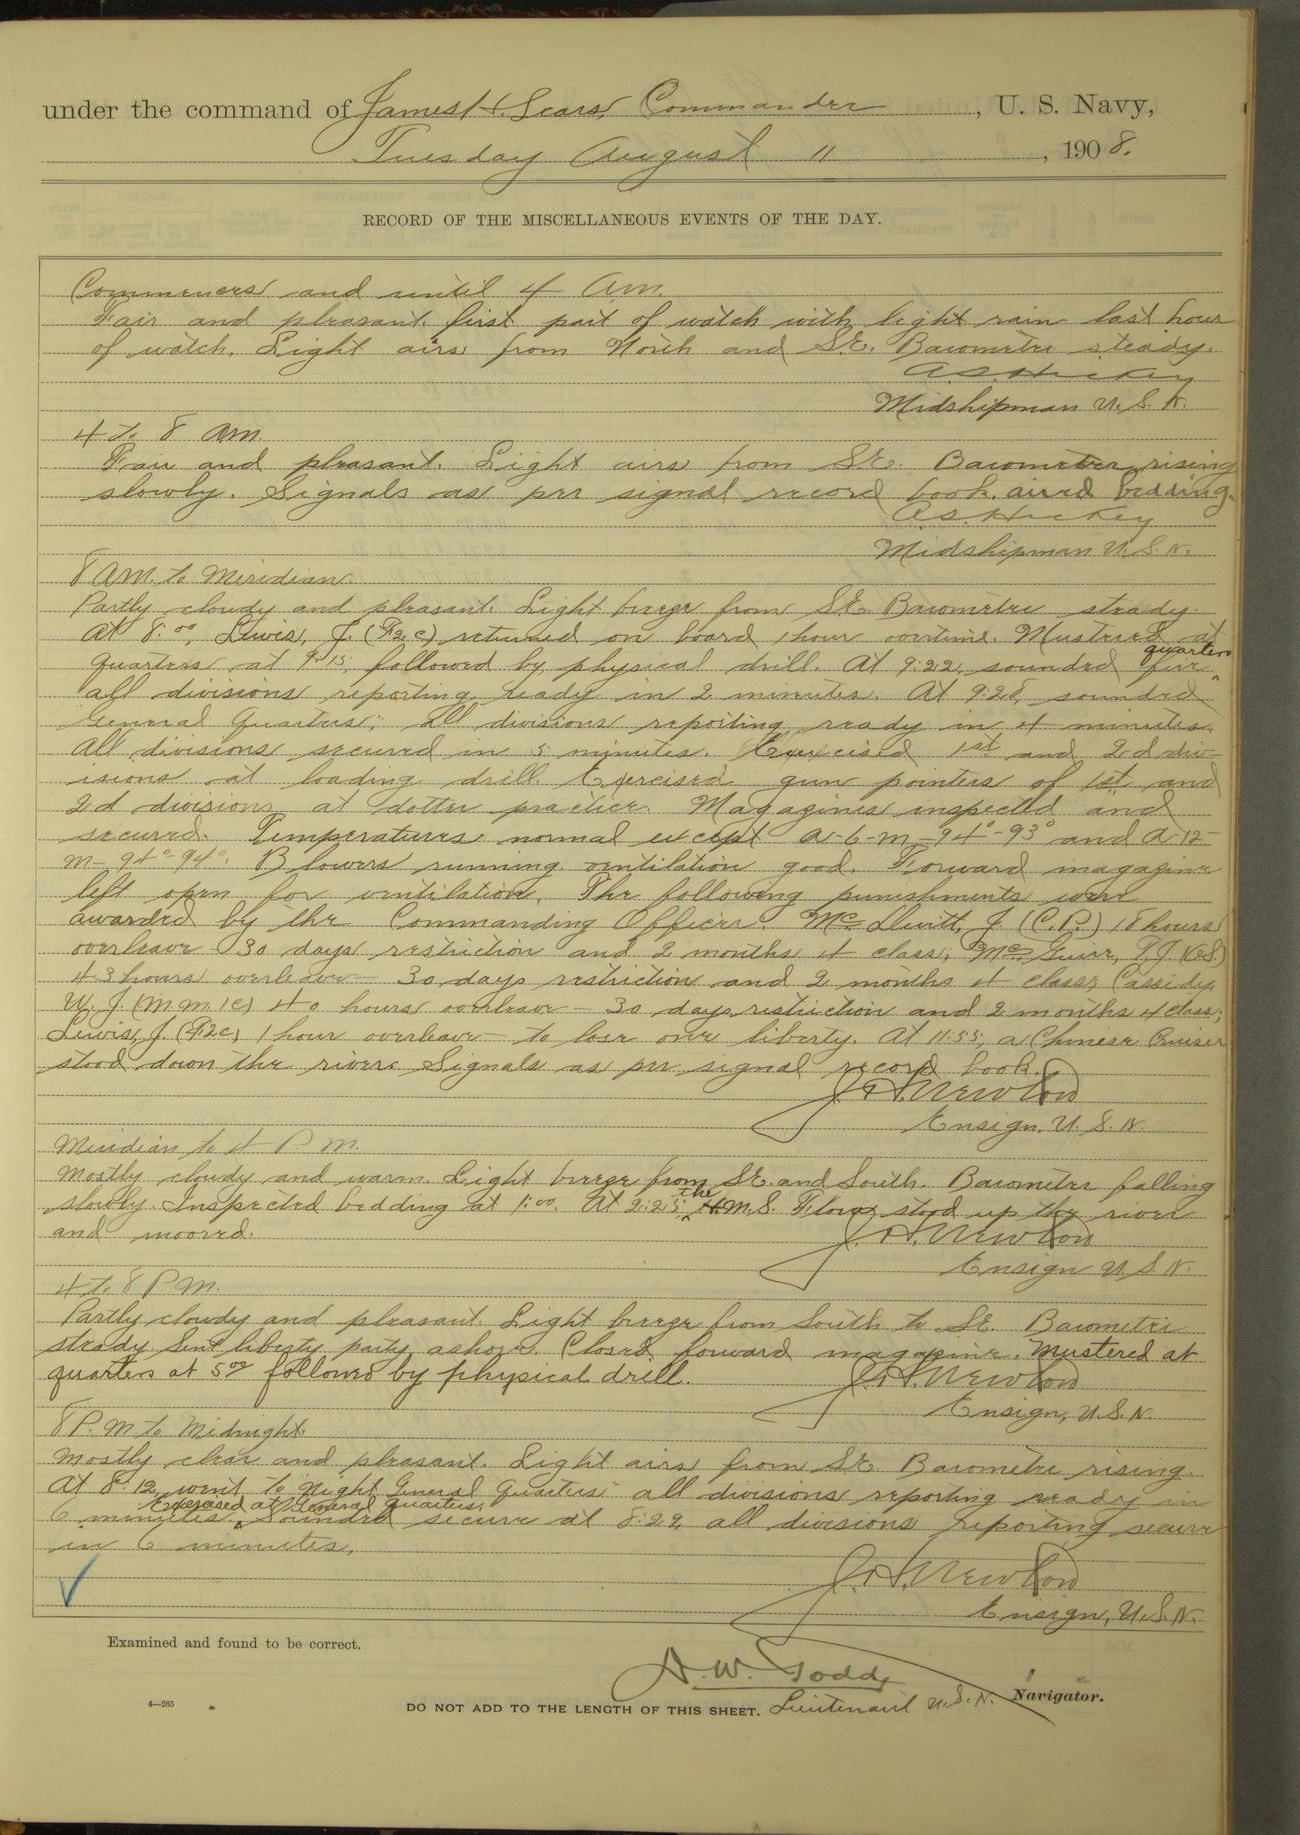 under the command of James H. Sears, Commander, U. S. Navy,
Tuesday August 11, 1908.
RECORD OF THE MISCELLANEOUS EVENTS OF THE DAY.
Commences and until 4 a.m.
Fair and pleasant first part of watch with light rain last hour
of watch. Light airs from North and S.E. Barometer steady.
A.S. Hickey
Midshipman U.S.N.
4 to 8 am.
Fair and pleasant. Light airs from S.E. Barometer rising
slowly. Signals as per signal record book. aired bedding.
A.S. Hickey
Midshipman U.S.N.
8 AM. to Meridian.
Partly cloudy and pleasant. Light breeze from S.E. Barometer steady.
At 8:00, Lewis, J. (F2c) returned on board 1 hour overtime. Mustered at
quarters at 9:15, followed by physical drill. At 9:22, sounded fire quarters
all divisions reporting ready in 2 minutes. At 9:28, sounded
General Quarters; all divisions reporting ready in 4 minutes.
All divisions secured in 5 minutes. Exercised 1st and 2d div-
isions at loading drill. Exercised gun pointers of 1st and
2d divisions at dotter practice. Magazines inspected and
secured. Temperatures normal except A-6-M-94°-93° and A-12-
M-94°-94°. Blowers running ventilation good. Forward magazine
left open for ventilation. The following punishments were
awarded by the Commanding Officer. McDevitt, J (C.P.) 18 hours
overleave 30 days restriction and 2 months 4 class; McGuire, T.J. (O.S.)
43 hours overleave - 30 days restriction and 2 months 4 class; Cassidy,
W. J. (M.M.1C) 40 hours overleave - 30 days restriction and 2 months 4 class;
Lewis, J. (F2c) 1 hour overleave - to lose one liberty. At 11:55, a Chinese Cruiser
stood down the river. Signals as per signal record book.
J.H. Newton
Ensign, U.S.N.
Meridian to 4 P.M.
Mostly cloudy and warm. Light breeze from S.E. and South. Barometer falling
slowly. Inspected bedding at 1:00. At 2:25 the H.M.S. Flora stood up the river
and moored.
J.H. Newton
Ensign U.S.N.
4 to 8 P.M.
Partly cloudy and pleasant. Light breeze from South to S.E. Barometer
steady. Sent liberty party ashore. Closed forward magazine. Mustered at
quarters at 5:00 followed by physical drill.
J.H. Newton
Ensign, U.S.N.
8 P.M. to Midnight.
Mostly clear and pleasant. Light airs from S.E. Barometer rising.
At 8:12, went to Night General Quarters all divisions reporting ready in
6 minutes. Exercised at General Quarters. Sounded secure at 8:29, all divisions reporting secure
in 6 minutes.
J.H. Newton
Ensign, U.S.N.
Examined and found to be correct.
A. W. Todd,
Lieutenant U.S.N. Navigator.
4—265
DO NOT ADD TO THE LENGTH OF THIS SHEET.